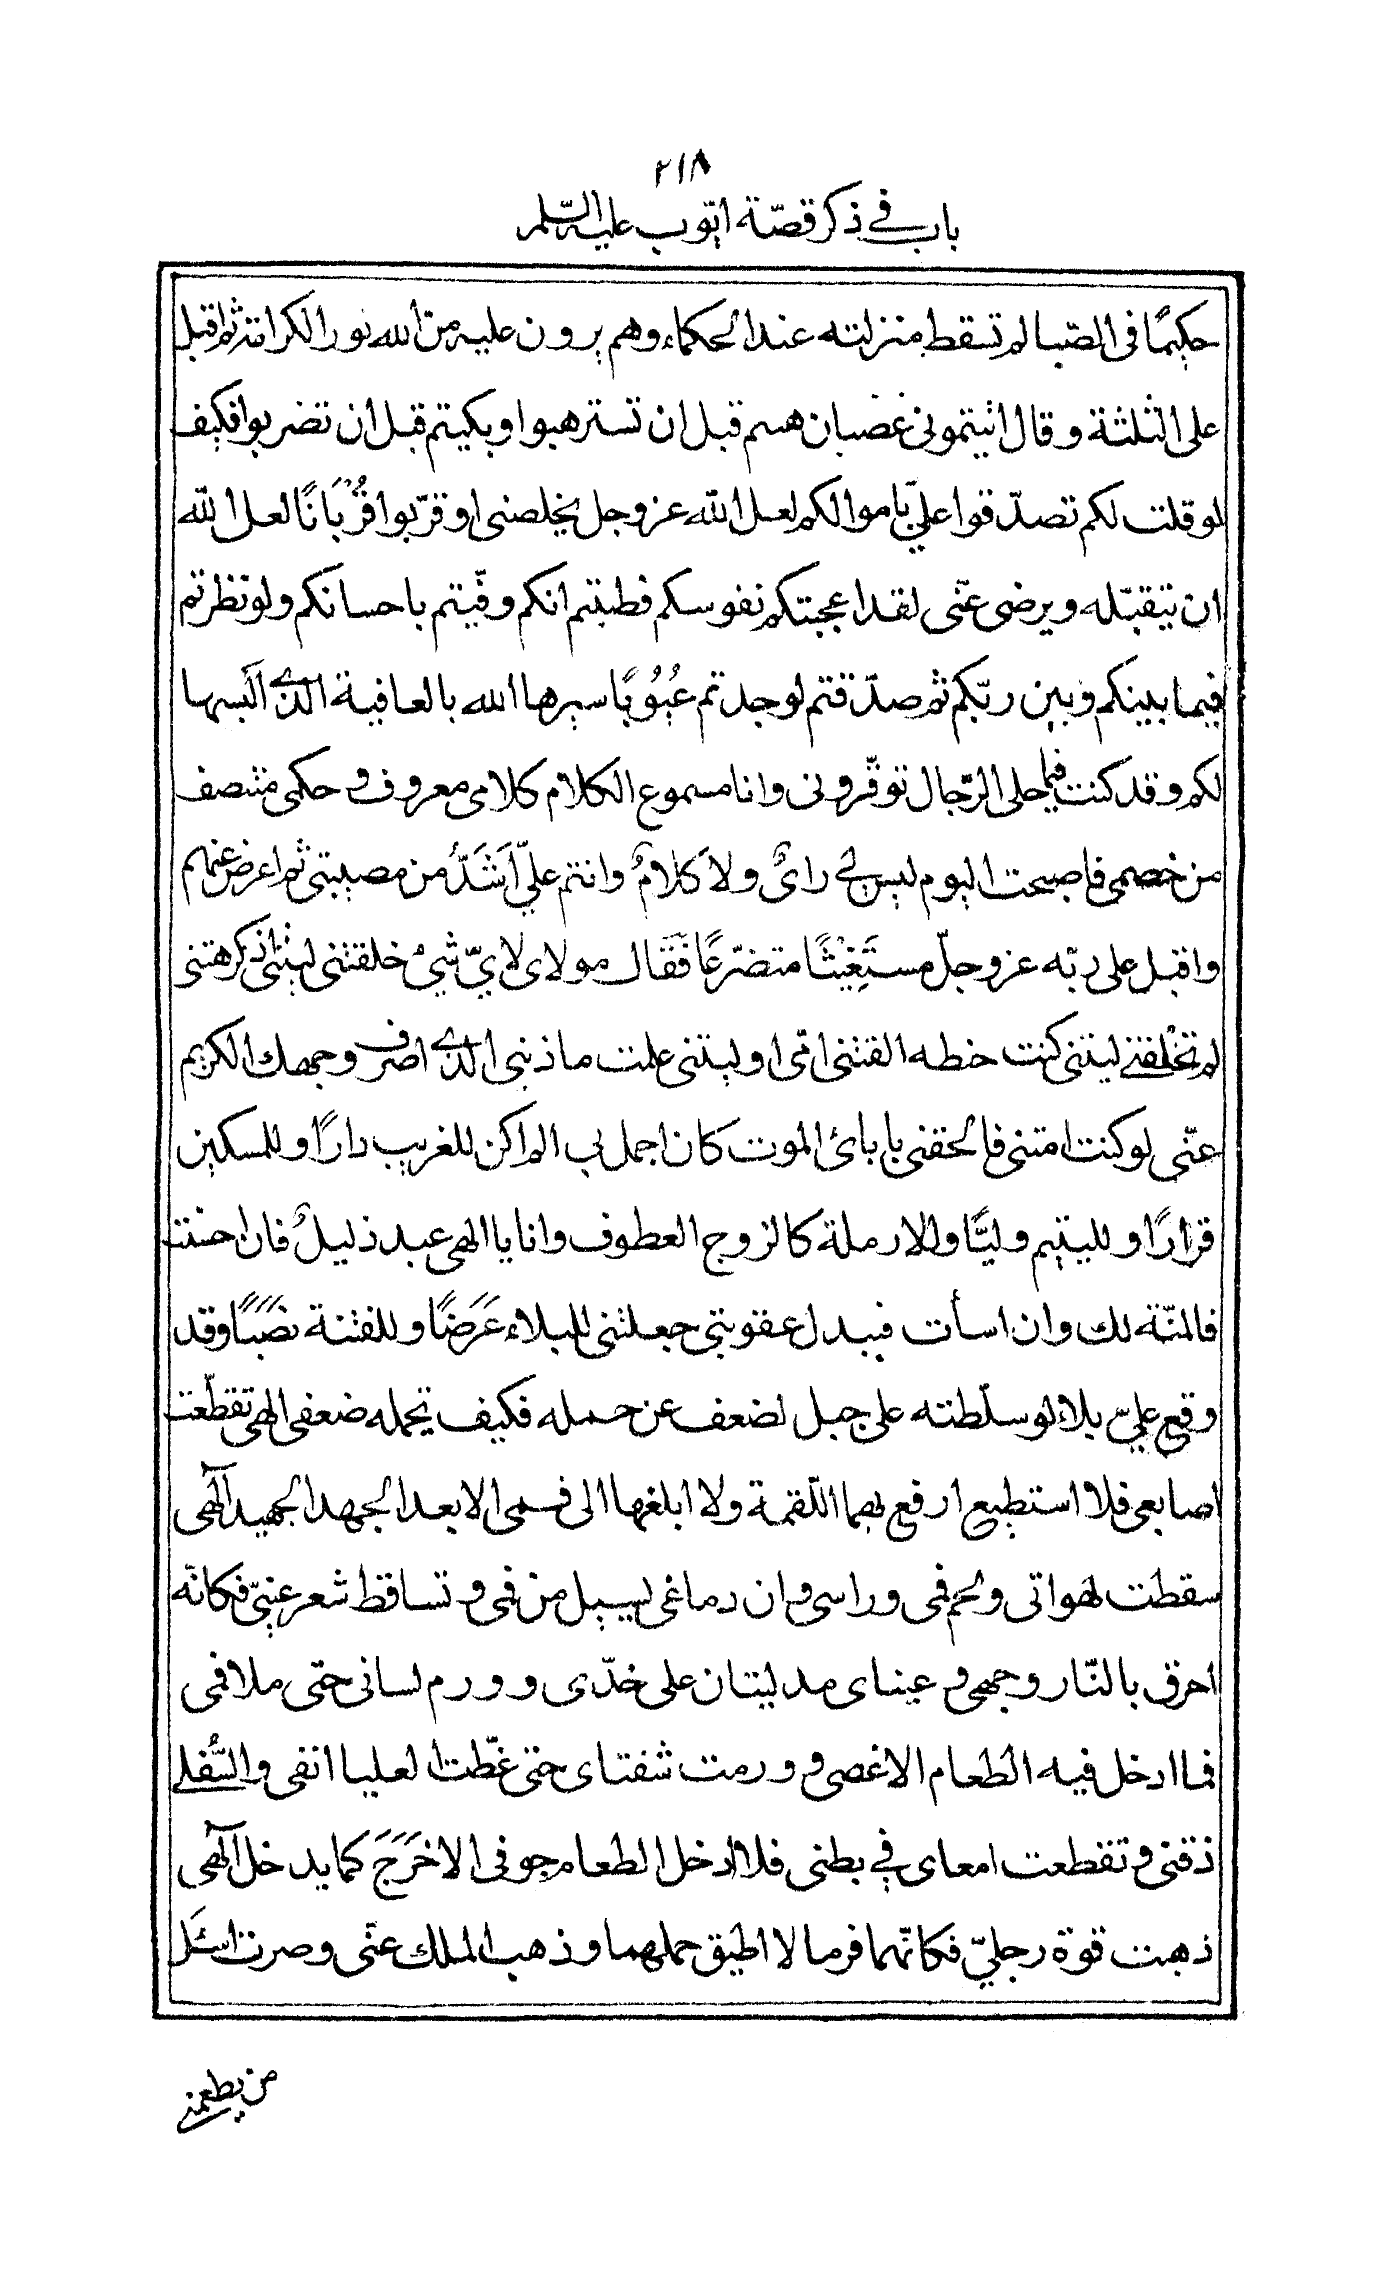 ٢١٨
باب في ذكر قصّة ايّوب عليه السّلم
حكيمًا في الصّبا لم تسقط منزلته عند الحكماء وهم يرون عليه من الله نور الكرامة ثم اقبل
على الثلثة وقال اتيتموني غضبان هسم قبل ان تسترهبوا وبكيتم قبل ان تضربوا فكيف
لو قلت لكم تصدّقوا عليّ باموالكم لعل الله عز وجل يخلصني او قرّبوا قُرْبَانًا لعل الله
ان يتقبّله ويرضى عنّي لقد اعجبتكم نفوسكم فطبتم انكم وفّيتم باحسانكم ولو نظرتم
فيما بينكم وبين ربّكم ثم صدّقتم لوجدتم عُيُوبًا سيرها الله بالعافية الذي اَلبسها
لكم وقد كنت فيما حلى الرّجال توقّروني وانا مسموع الكلام كلامي معروف وحكمي متنصف
من خصمي فاصبحت اليوم ليس لي رايٌ ولا كَلامٌ وانتم عليّ اَشَدُّ من مصيبتي ثم اعرض عنهم
واقبل على ربّه عز وجلّ مستَغِيْثًا متضرّعًا فَقَال مولاي لايّ شيءٍ خلقتني ليتني اذ كرهتني
لم تخلقني ليتني كنت حنطه القتني امّي او ليتني علمت ما ذنبي الذي اصرف وجهك الكريم
عنّي لو كنت امتني فالحقني بابائ الموت كان اجمل بي الم اكن للغريب دارًا وللمسكين
قرارًا ولليتيم وليًّا وللارملة كالزوج العطوف وانا يا الهي عبد ذليلٌ فان احسنت
فالمنّة لك وان اسأت فبيدك عقوبتي جعلتني للبلاء عَرَضًا وللفتنة نَصَبًا وقد
وقع عليّ بلاء لو سلّطته على جبل لضعف عن حمله فكيف تحمله ضعفي الهي تقطّعت
اصابعي فلا استطيع ارفع بهما اللّقمة ولا ابلغها الى فمي الا بعد الجهد الجهيد آلهي
سقطت لهواتي ولحم فمي وراسي وان دماغي ليسيل من فمي وتساقط شعر عنيّي فكانّه
احرق بالنّار وجهي وعيناي مدليتان على خدّي وورم لساني حتى ملا فمي
فما ادخل فيه الطعام الا غصي وورمت شفتاي حتى غطّت العليا انفي والسُّفلي
ذقني وتقطعت امعاي في بطني فلا ادخل الطعام جوفي الا خَرَجَ كما يدخل آلهي
ذهبت قوة رجليّ فكانّهما قرما لا اطيق حملهما وذهب الملك عنّي وصرت اسئَل
من يطعمني